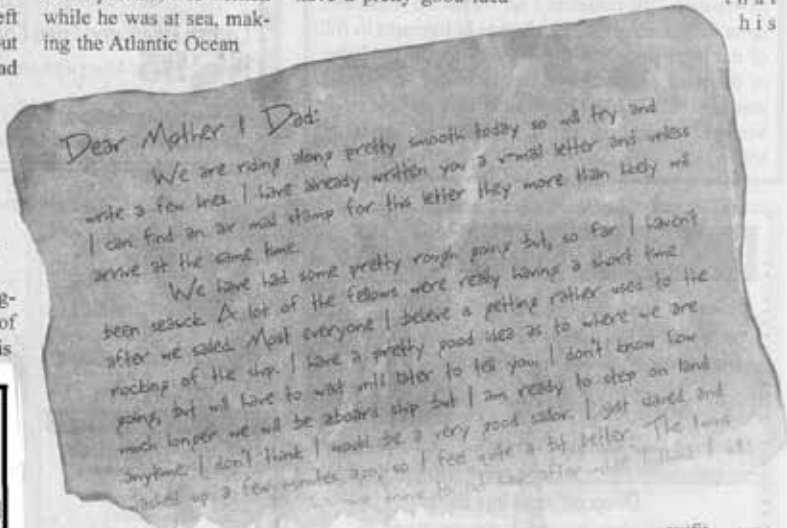 eft
while he was at sea, mak-
that
ut
ing the Atlantic Ocean
his
ad
Dear Mother & Dad:
We are riding along pretty smooth today so will try and
write a few lines. I have already written you a v-mail letter and unless
I can find an air mail stamp for this letter they more than likely will
arrive at the same time.
We have had some pretty rough going but, so far I haven't
been seasick. A lot of the fellows were really having a short time
after we sailed. Most everyone I believe is getting rather used to the
rocking of the ship. I have a pretty good idea as to where we are
going, but will have to wait until later to tell you. I don't know how
much longer we will be aboard ship but I am ready to step on land
anytime. I don't think I would be a very good sailor. I got shaved and
washed up a few minutes ago, so I feel quite a bit better. The
g-
of
is